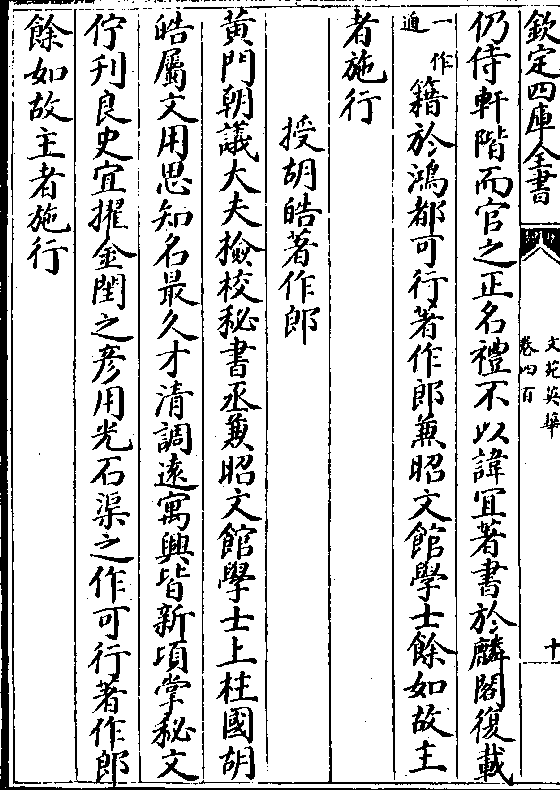 欽定四庫全書
文苑英華
卷四百
十
仍侍軒階而官之正名禮不以諱宜著書於麟閣復載
一作
逈
籍於鴻都可行著作郎兼昭文館學士餘如故主
者施行
授胡皓著作郎
黄門朝議大夫撿校秘書丞兼昭文館學士上柱國胡
皓屬文用思知名最久才清調遠寓興皆新頃掌秘文
佇刋良史宜擢金閨之彦用光石渠之作可行著作郎
餘如故主者施行